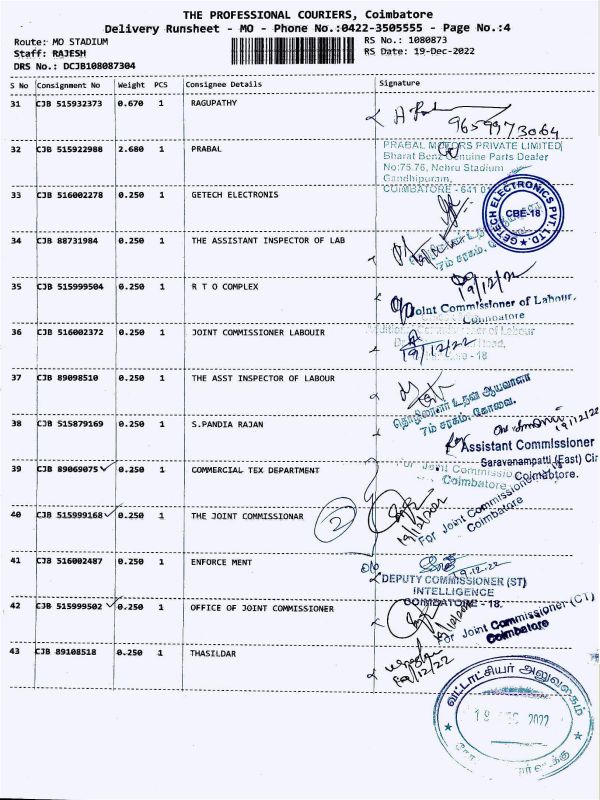 THE PROFESSIONAL COURIERS, Coimbatore
Delivery Runsheet - MO - Phone No.:0422-3505555 - Page No.:4
Route: MO STADIUM
RS No.: 1080873
Staff: RAJESH
RS Date: 19-Dec-2022
DRS No.: DCJB108087304
S No Consignment No Weight PCS Consignee Details Signature
31 CJB 515932373 0.670 1 RAGUPATHY
9659973064
32 CJB 515922988 2.680 1 PRABAL
PRABAL MOTORS PRIVATE LIMITED
Bharat Benz Genuine Parts Dealer
No:75.76, Nehru Stadium
Gandhipuram,
COIMBATORE - 641 01
33 CJB 516002278 0.250 1 GETECH ELECTRONIS
GETECH ELECTRONICS PVT. LTD.
CBE-18
34 CJB 88731984 0.250 1 THE ASSISTANT INSPECTOR OF LAB
7ம் சரகம்,
35 CJB 515999504 0.250 1 R T O COMPLEX
19/12/22
Joint Commissioner of Labour,
Coimbatore
36 CJB 516002372 0.250 1 JOINT COMMISSIONER LABOUIR
of Labour
Road,
- 18
19/12/22
37 CJB 89098510 0.250 1 THE ASST INSPECTOR OF LABOUR
தொழிலாளர் உதவி ஆய்வாளர்
7ம் சரகம், கோவை.
38 CJB 515879169 0.250 1 S.PANDIA RAJAN
19/12/22
Assistant Commissioner
Saravenampatti (East) Cir
Coimabtore.
39 CJB 89069075 0.250 1 COMMERCIAL TEX DEPARTMENT
For Joint Commissio
Coimbatore
40 CJB 515999168 0.250 1 THE JOINT COMMISSIONAR
2
19/12/2022
For Joint Commissioner
Coimbatore
41 CJB 516002487 0.250 1 ENFORCE MENT
19.12.22
DEPUTY COMMISSIONER (ST)
INTELLIGENCE
COIMBATORE - 18.
42 CJB 515999502 0.250 1 OFFICE OF JOINT COMMISSIONER
For Joint Commissioner (CT)
Coimbatore
43 CJB 89108518 0.250 1 THASILDAR
19/12/22
வட்டாட்சியர் அலுவலகம்
2022